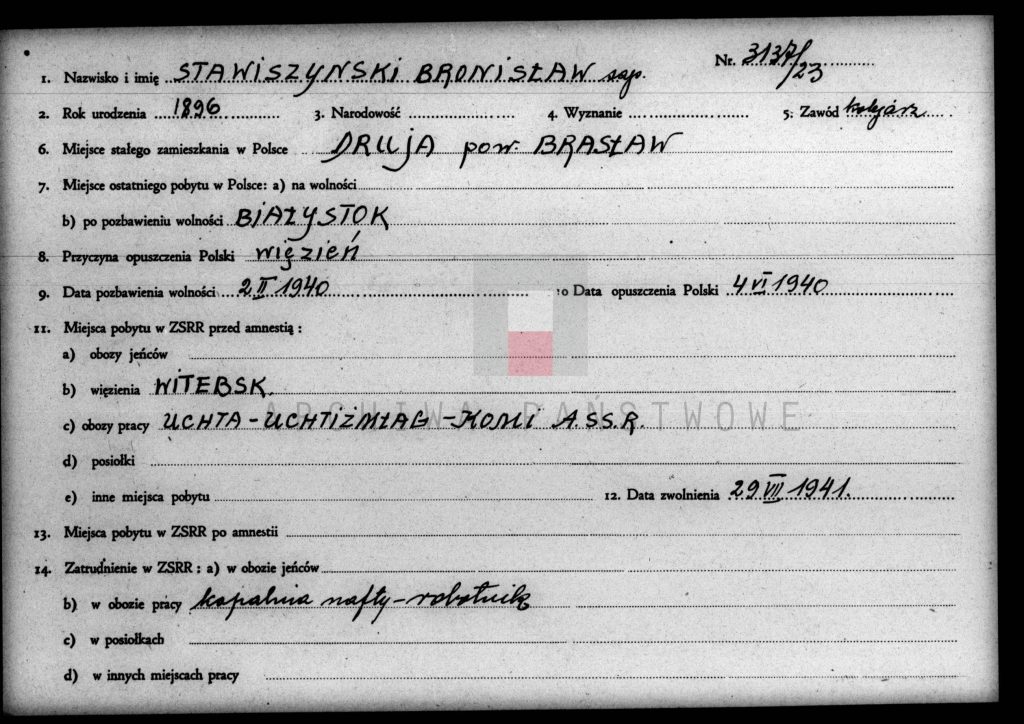 Nr. 3137/23
1. Nazwisko i imię STAWISZYNSKI BRONISŁAW sap.
2. Rok urodzenia 1896 3. Narodowość 4. Wyznanie 5. Zawód kolejarz
6. Miejsce stałego zamieszkania w Polsce DRUJA pow. BRASŁAW
7. Miejsce ostatniego pobytu w Polsce: a) na wolności
b) po pozbawieniu wolności BIAŁYSTOK
8. Przyczyna opuszczenia Polski więzień
9. Data pozbawienia wolności 2 II 1940 10 Data opuszczenia Polski 4 VI 1940
11. Miejsca pobytu w ZSRR przed amnestią :
a) obozy jeńców
b) więzienia WITEBSK.
ARCHIWA PAŃSTWOWE
c) obozy pracy UCHTA - UCHTIŻMŁAG - KOMI A.S.S.R.
d) posiołki
e) inne miejsca pobytu 12. Data zwolnienia 29 VIII 1941.
13. Miejsca pobytu w ZSRR po amnestii
14. Zatrudnienie w ZSRR : a) w obozie jeńców
b) w obozie pracy kopalnia nafty - robotnik
c) w posiołkach
d) w innych miejscach pracy